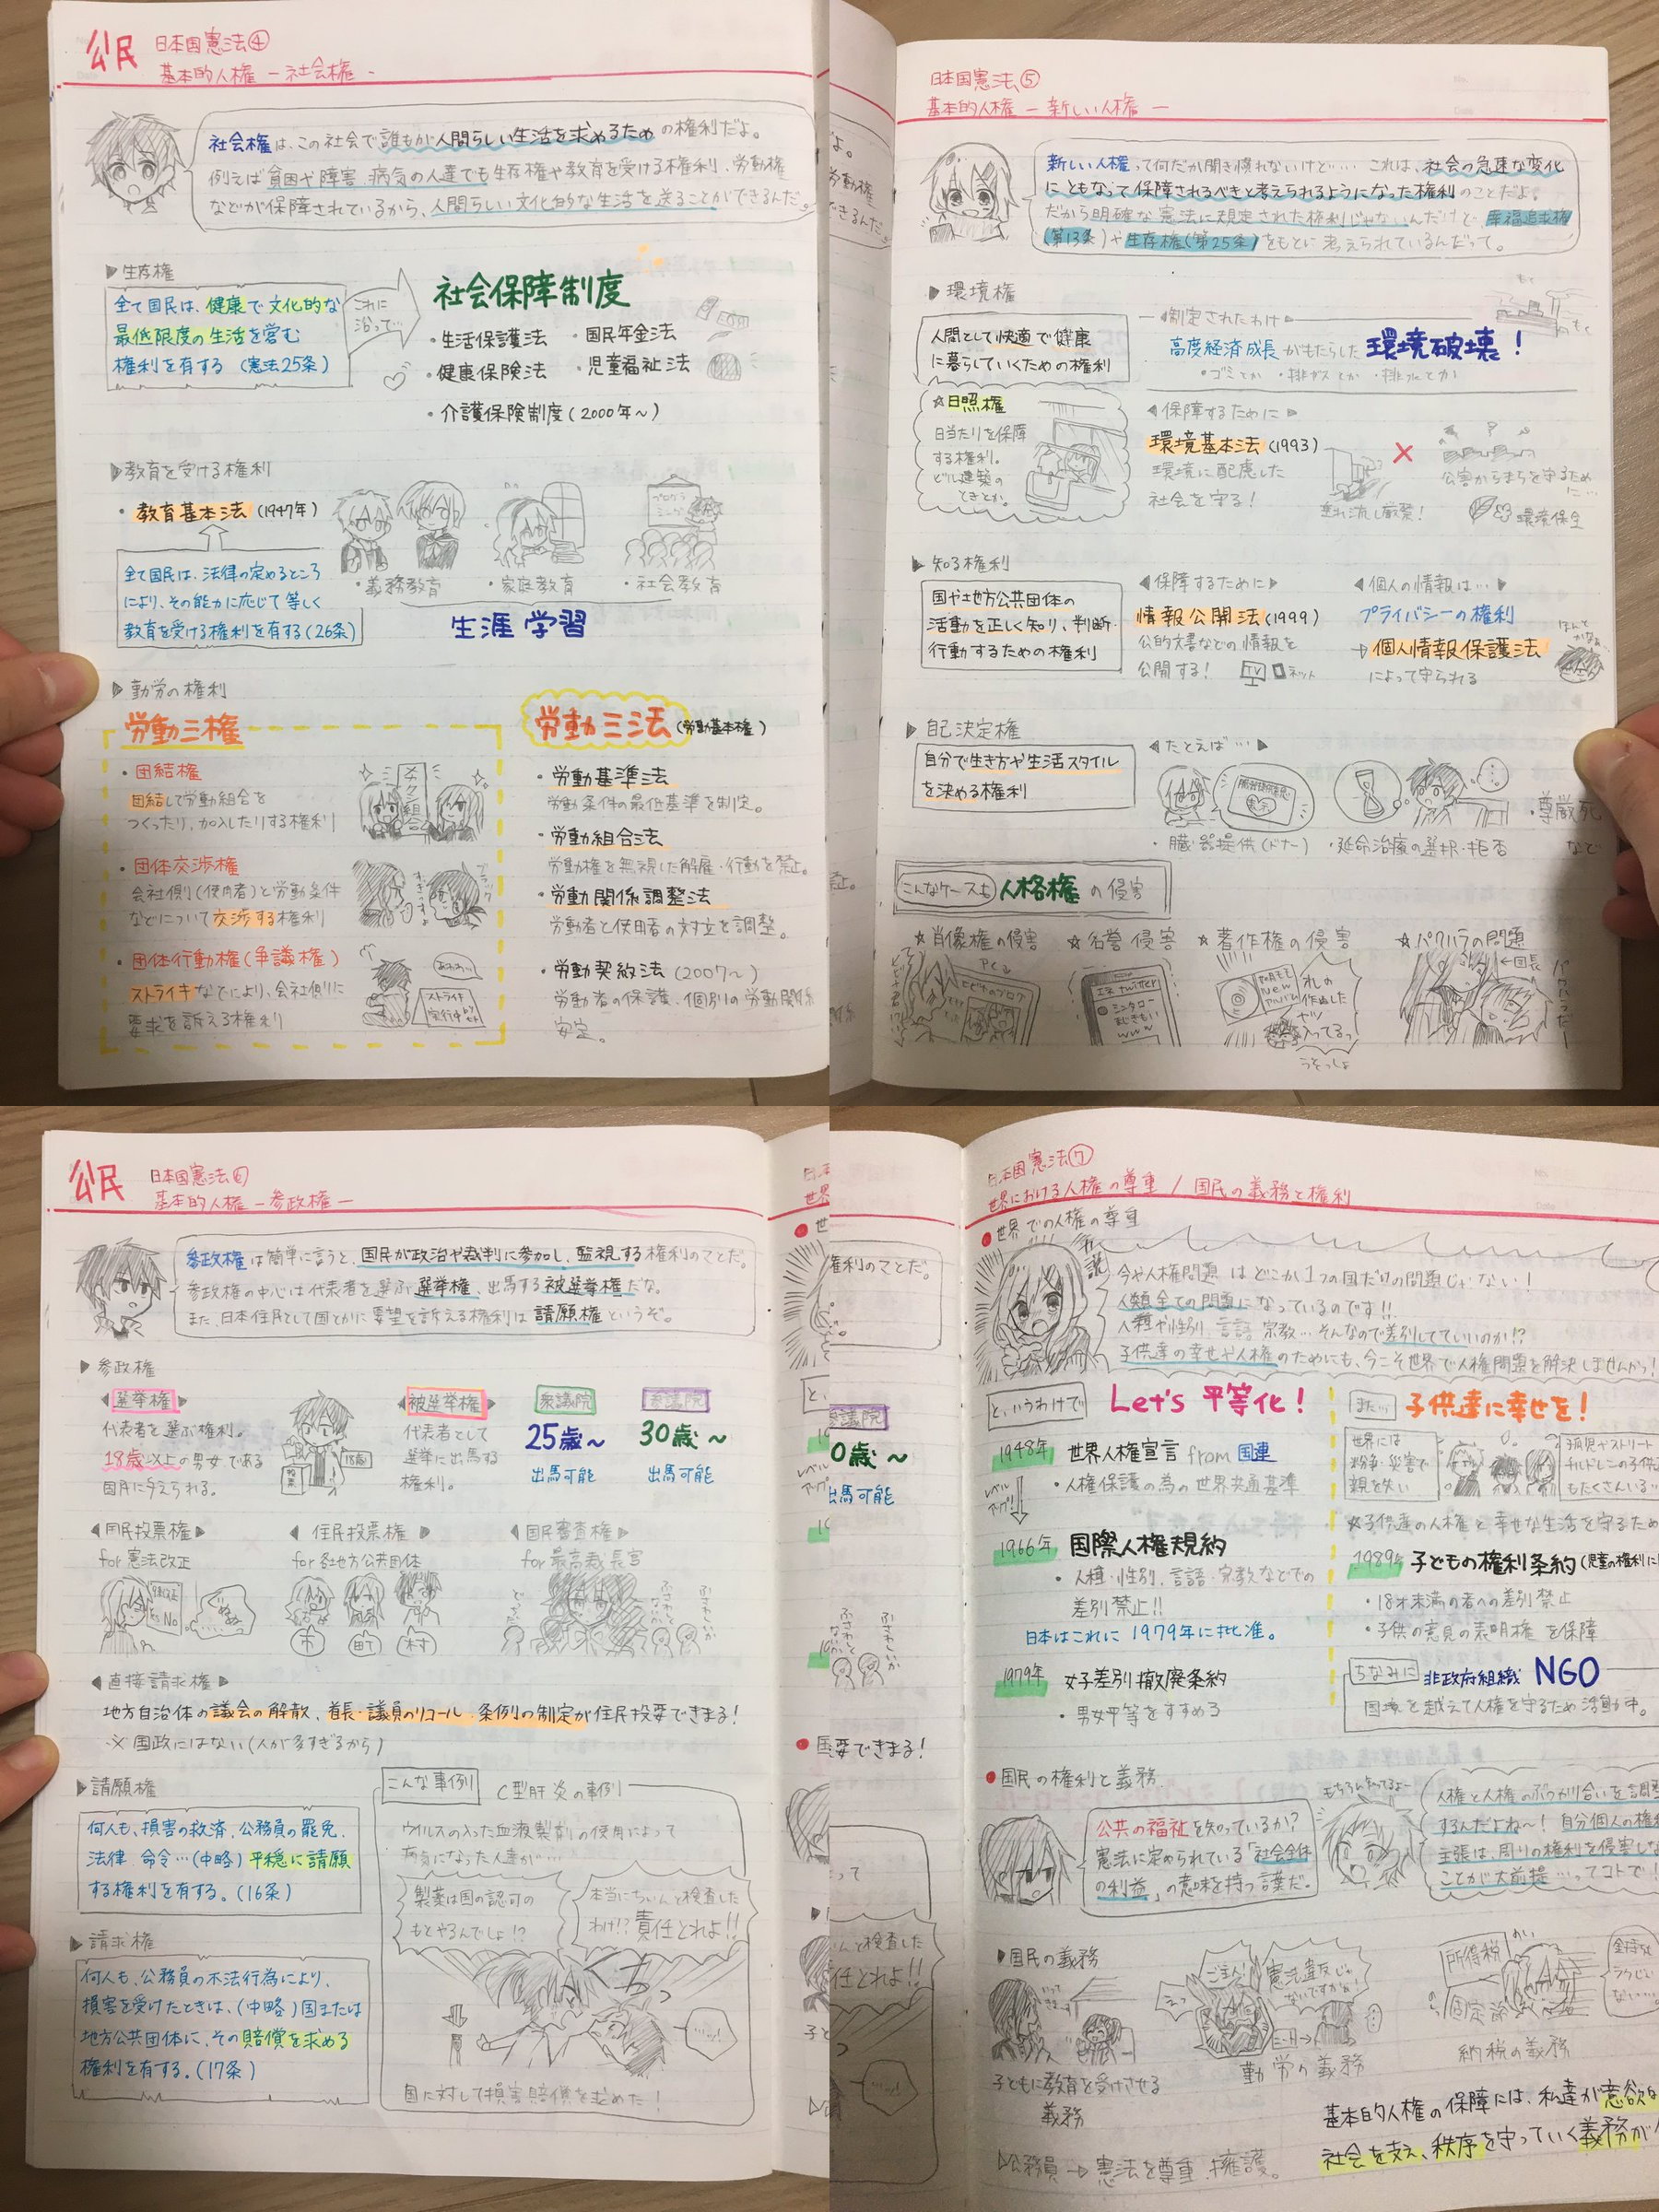 公民
日本国憲法④
基本的人権 － 社会権 －
社会権は、この社会で誰もが人間らしい生活を求めるための権利だよ。
例えば貧困や障害、病気の人達でも生存権や教育を受ける権利、労働権
などが保障されているから、人間らしい文化的な生活を送ることができるんだ。
▶生存権
全て国民は、健康で文化的な
最低限度の生活を営む
権利を有する (憲法25条)
これに
沿って…
社会保障制度
・生活保護法 ・国民年金法
・健康保険法 ・児童福祉法
・介護保険制度 (2000年～)
▶教育を受ける権利
・教育基本法 (1947年)
全て国民は、法律の定めるところ
により、その能力に応じて等しく
教育を受ける権利を有する (26条)
・義務教育 ・家庭教育 ・社会教育
生涯学習
▶勤労の権利
労働三権
・団結権
団結して労働組合を
つくったり、加入したりする権利
・団体交渉権
会社側(使用者)と労働条件
などについて交渉する権利
・団体行動権(争議権)
ストライキなどにより、会社側に
要求を訴える権利
ストライキ
実行中
労働三法 (労働基本権)
・労働基準法
労働条件の最低基準を制定。
・労働組合法
労働権を無視した解雇・行動を禁止。
・労働関係調整法
労働者と使用者の対立を調整。
・労働契約法 (2007～)
労働者の保護、個別の労働関係
安定。
日本国憲法⑤
基本的人権 － 新しい人権 －
新しい人権って何だか聞き慣れないけど…… これは、社会の急速な変化
にともなって保障されるべきと考えられるようになった権利のことだよ。
だから明確な憲法に規定された権利じゃないんだけど、幸福追求権
(第13条)や生存権(第25条)をもとに考えられているんだって。
▶環境権
人間として快適で健康
に暮らしていくための権利
制定されたわけ
高度経済成長がもたらした環境破壊！
・ゴミとか ・排ガスとか ・排水とか
☆日照権
日当たりを保障
する権利。
ビル建築の
ときとか。
◀保障するために▶
環境基本法 (1993)
環境に配慮した
社会を守る！
垂れ流し厳禁！
公害からまちを守るため
に…
環境保全
▶知る権利
国や地方公共団体の
活動を正しく知り、判断・
行動するための権利
◀保障するために▶
情報公開法 (1999)
公的文書などの情報を
公開する！
TV
ネット
◀個人の情報は…▶
プライバシーの権利
→個人情報保護法
によって守られる
ほんと
かなぁ
▶自己決定権
自分で生き方や生活スタイル
を決める権利
◀たとえば…▶
・臓器提供(ドナー) ・延命治療の選択・拒否
・尊厳死
など
こんなケースも 人格権の侵害
☆肖像権の侵害 ☆名誉侵害 ☆著作権の侵害 ☆パクハラの問題
twitter
公民
日本国憲法⑥
基本的人権 － 参政権 －
参政権は簡単に言うと、国民が政治や裁判に参加し、監視する権利のことだ。
参政権の中心は代表者を選ぶ選挙権、出馬する被選挙権だな。
また、日本住民として国とかに要望を訴える権利は請願権というぞ。
▶参政権
◀選挙権▶
代表者を選ぶ権利。
18歳以上の男女である
国民に与えられる。
18歳!
投票
◀被選挙権▶
代表者として
選挙に出馬する
権利。
衆議院
25歳～
出馬可能
参議院
30歳～
出馬可能
◀国民投票権▶
for 憲法改正
◀住民投票権▶
for 各地方公共団体
市 町 村
◀国民審査権▶
for 最高裁長官
◀直接請求権▶
地方自治体の議会の解散、首長・議員のリコール、条例の制定が住民投票できまる！
※国政にはない (人が多すぎるから)
▶請願権
何人も、損害の救済、公務員の罷免、
法律、命令…(中略) 平穏に請願
する権利を有する。(16条)
▶請求権
何人も、公務員の不法行為により、
損害を受けたときは、(中略) 国または
地方公共団体に、その賠償を求める
権利を有する。(17条)
こんな事例 C型肝炎の事例
ウイルスの入った血液製剤の使用によって
病気になった人達が…
製薬は国の認可の
もとやるんでしょ!?
本当にちゃんと検査した
わけ!? 責任とれよ!!
国に対して損害賠償を求めた！
日本国憲法⑦
世界における人権の尊重 / 国民の義務と権利
●世界での人権の尊重
今や人権問題はどこか1つの国だけの問題じゃない！
人類全ての問題になっているのです!!
人種や性別、言語、宗教… そんなので差別してていいのか!?
子供達の幸せや人権のためにも、今こそ世界で人権問題を解決しませんかっ！
というわけで Let's 平等化！
1948年 世界人権宣言 from 国連
・人権保護の為の世界共通基準
レベル
アップ!
1966年 国際人権規約
・人種・性別、言語・宗教などでの
差別禁止!!
日本はこれに1979年に批准。
1979年 女子差別撤廃条約
・男女平等をすすめる
また… 子供達に幸せを！
世界には
紛争・災害で
親を失い
孤児やストリート
チルドレンの子供
もたくさんいる…
☆子供達の人権と幸せな生活を守るため
1989年 子どもの権利条約 (児童の権利に
・18才未満の者への差別禁止
・子供の意見の表明権を保障
ちなみに 非政府組織 NGO
国境を越えて人権を守るため活動中。
●国民の権利と義務
公共の福祉を知っているか？
憲法に定められている「社会全体
の利益」の意味を持つ言葉だ。
もちろん知ってるよー
人権と人権のぶつかり合いを調整
するんだよね～！ 自分個人の権利
主張は、周りの権利を侵害しな
ことが大前提…ってコトで！
▶国民の義務
子どもに教育を受けさせる
義務
憲法違反じゃ
ないですかぁ
勤労の義務
所得税
固定資
納税の義務
▷公務員 → 憲法を尊重・擁護。
基本的人権の保障には、私達が意欲的
社会を支え、秩序を守っていく義務が